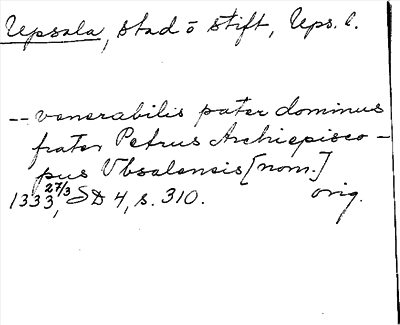 Upsala, stad o stift, Ups. l.
-- venerabilis pater dominus
frater Petrus Archiepisco-
pus Vbsalensis [nom.]
1333 27/3, SD 4, s. 310. orig.